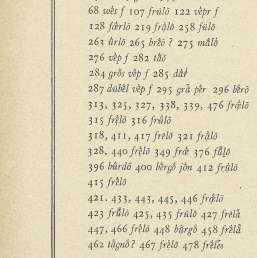 68 wès f 107 frülō 122 vèpr f
128 fœrlō 219 frạ̈lō 258 fülō
263 ürlō 265 brēō ? 275 mālō
276 vèp f 282 tāō
284 grōs vèp f 285 dār
287 dübèl vèp f 295 grā pèr 296 bèrō
313, 325, 327, 338, 339, 476 frèlō
315 frèlō 316 frülō
318, 411, 417 frelō 321 frālō
328, 440 frèlō 349 frœ 376 fülō
396 būrdō 400 bèrgō jōn 412 frülō
415 frèlō
421. 433, 443, 445, 446 frèlō
423 frülō 425, 435 frülō 427 frelā
447, 466 frèlō 448 bürgō 458 frèlā
462 tāgnō ? 467 frèlō 478 frèlēs